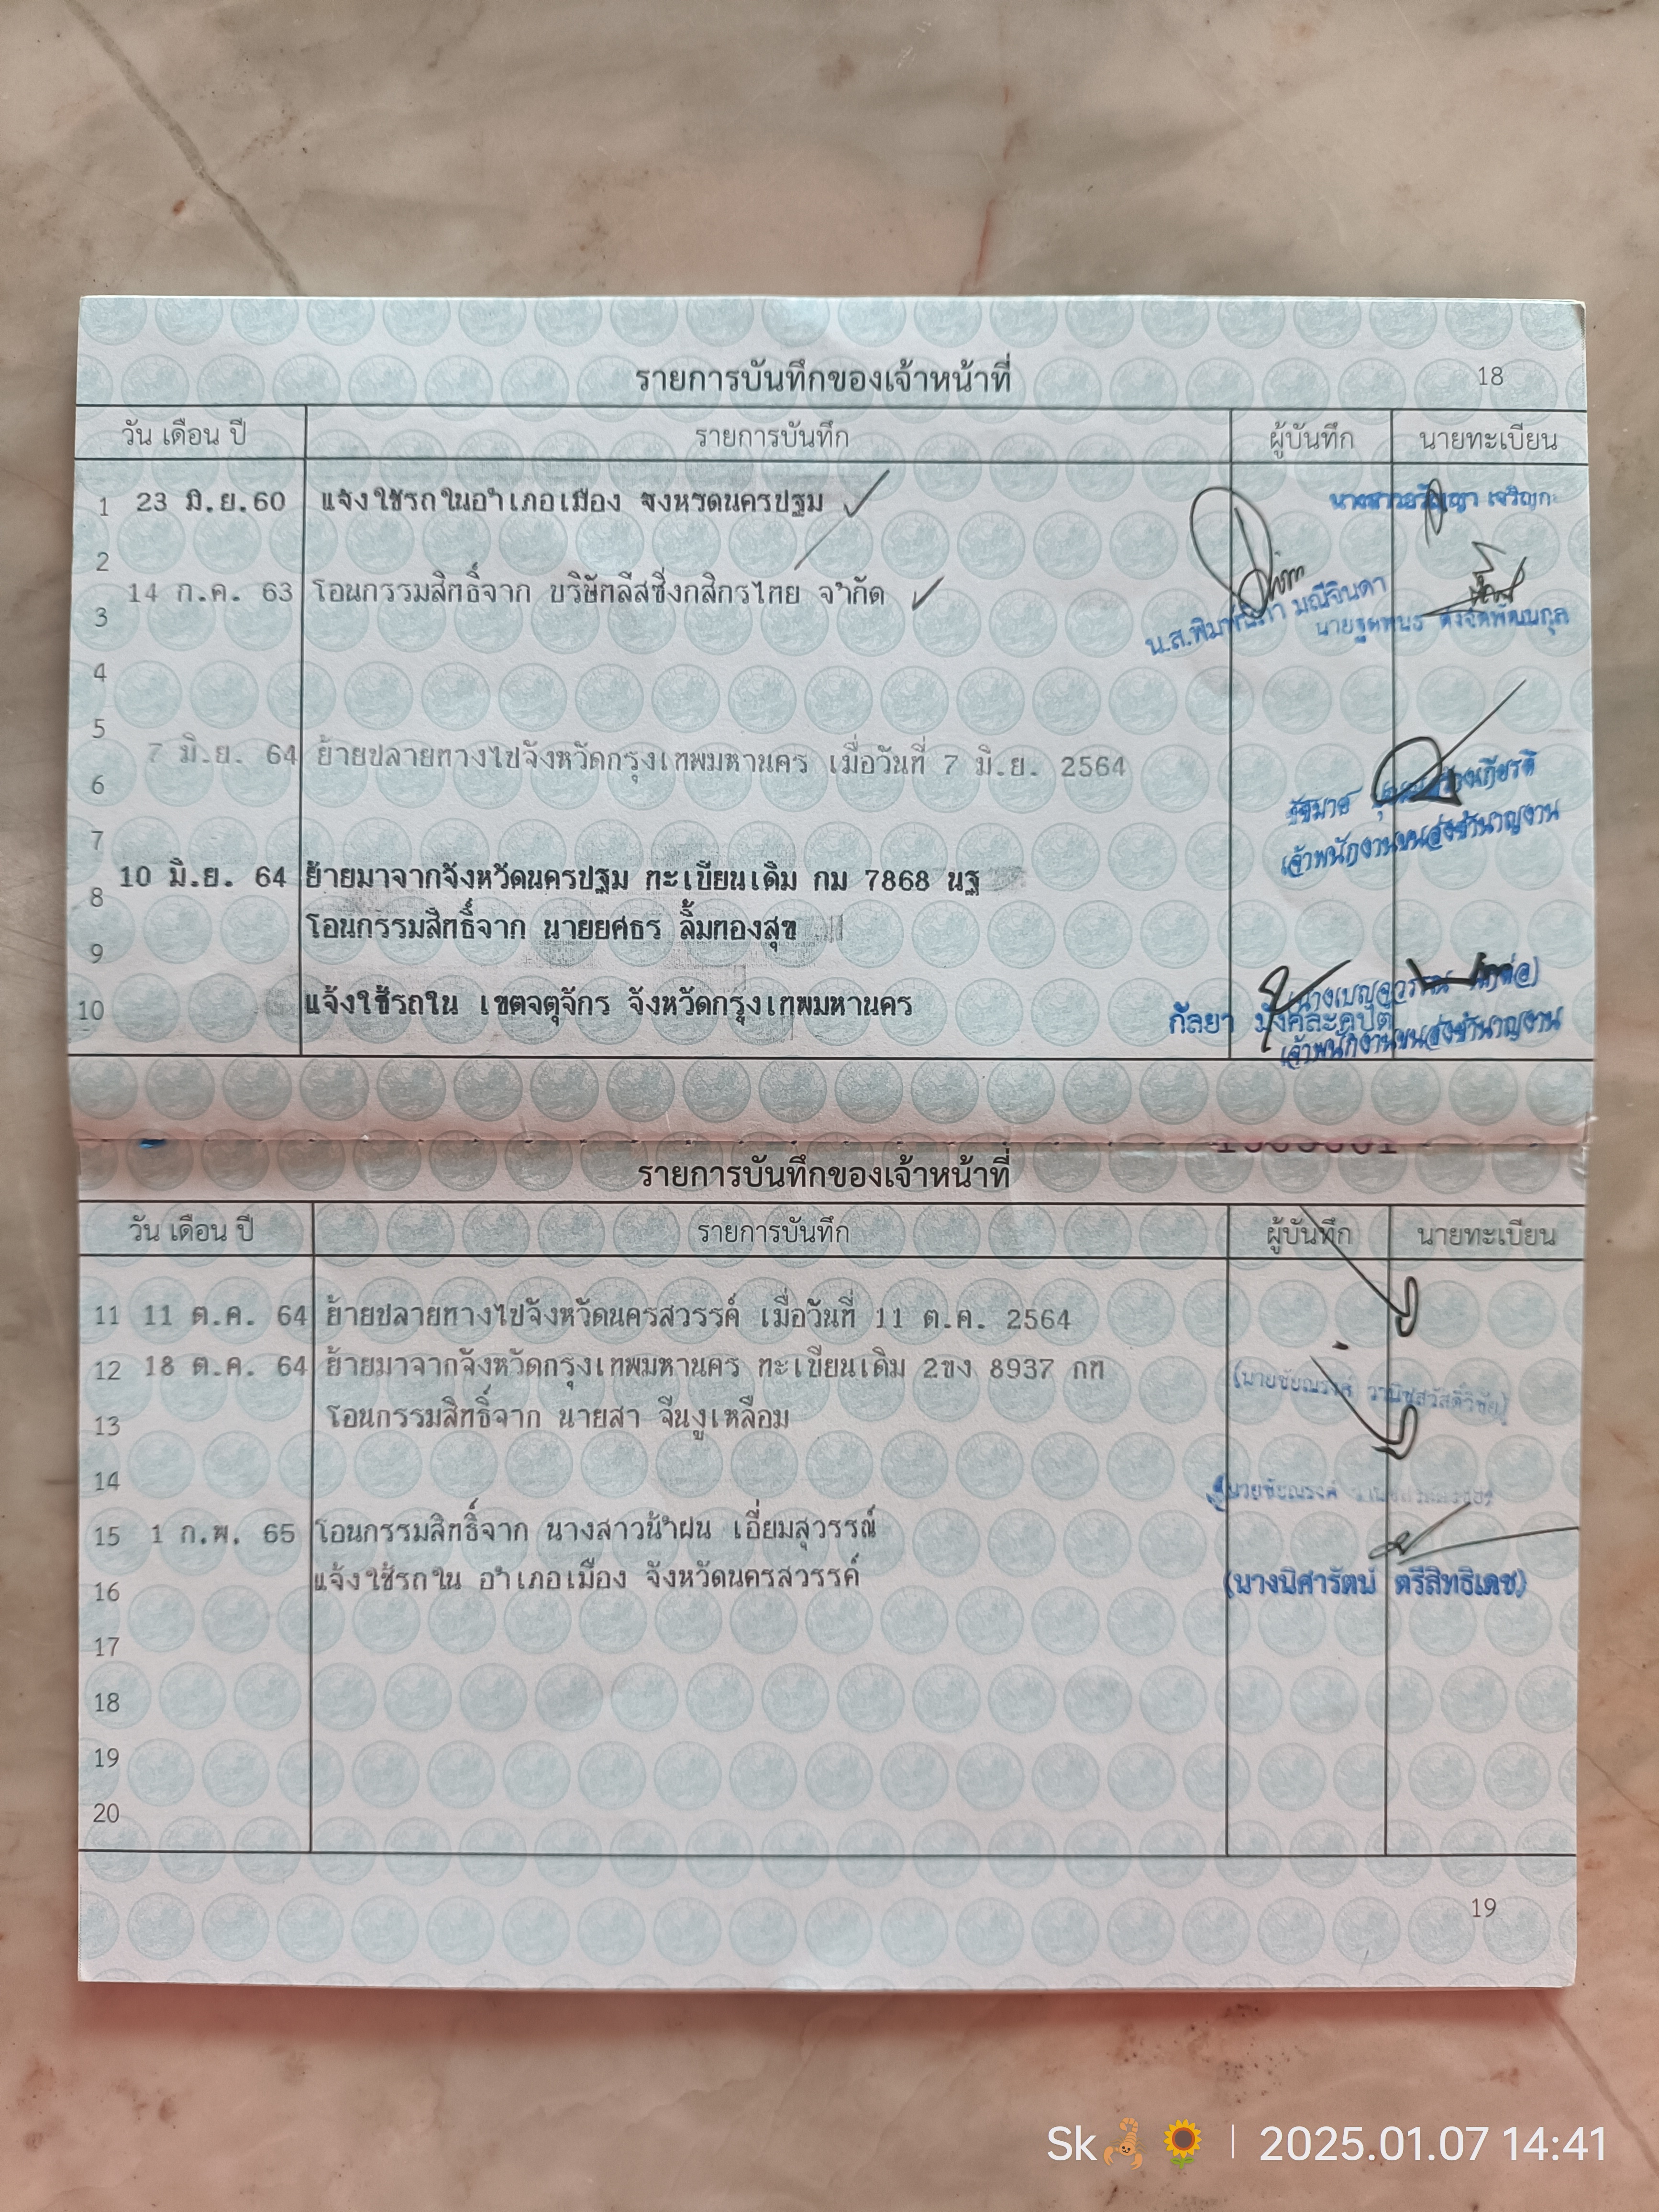 รายการบันทึกของเจ้าหน้าที่ 18
วัน เดือน ปี รายการบันทึก ผู้บันทึก นายทะเบียน
1 23 มิ.ย.60 แจ้งใช้รถในอำเภอเมือง จังหวัดนครปฐม
2
14 ก.ค. 63 โอนกรรมสิทธิ์จาก บริษัทลีสซิ่งกสิกรไทย จำกัด
3 น.ส. มณีจินดา
4
5
7 มิ.ย. 64 ย้ายปลายทางไปจังหวัดกรุงเทพมหานคร เมื่อวันที่ 7 มิ.ย. 2564
6
เจ้าพนักงานขนส่งชำนาญงาน
7
10 มิ.ย. 64 ย้ายมาจากจังหวัดนครปฐม ทะเบียนเดิม กม 7868 นฐ
8
โอนกรรมสิทธิ์จาก นายยศธร ลิ้มทองสุข
9
10 แจ้งใช้รถใน เขตจตุจักร จังหวัดกรุงเทพมหานคร
กัลยา มังคละคุปต์
เจ้าพนักงานขนส่งชำนาญงาน
รายการบันทึกของเจ้าหน้าที่
วัน เดือน ปี รายการบันทึก ผู้บันทึก นายทะเบียน
11 11 ต.ค. 64 ย้ายปลายทางไปจังหวัดนครสวรรค์ เมื่อวันที่ 11 ต.ค. 2564
12 18 ต.ค. 64 ย้ายมาจากจังหวัดกรุงเทพมหานคร ทะเบียนเดิม 2ขง 8937 กท
(นายชัยณรงค์ วานิชสวัสดิ์วิชัย)
13 โอนกรรมสิทธิ์จาก นายสา จีนงูเหลือม
14
นายชัยณรงค์
15 1 ก.พ. 65 โอนกรรมสิทธิ์จาก นางสาวน้ำฝน เอี่ยมสุวรรณ์
16 แจ้งใช้รถใน อำเภอเมือง จังหวัดนครสวรรค์ (นางนิศารัตน์ ตรีสิทธิเดช)
17
18
19
20
19
Sk🦂🌻 | 2025.01.07 14:41